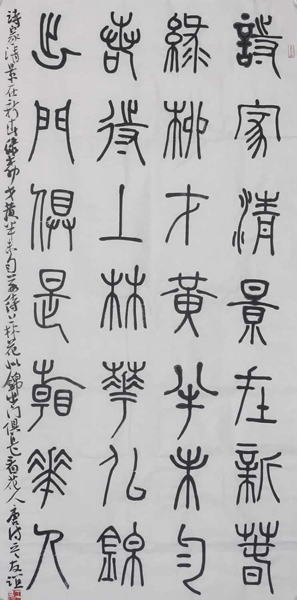 詩家清景在新春
綠柳才黃半未勻
若待上林華似錦
出門俱是看花人
詩家清景在新春綠柳才黃半未勻若待上林花似錦出門俱是看花人唐詩